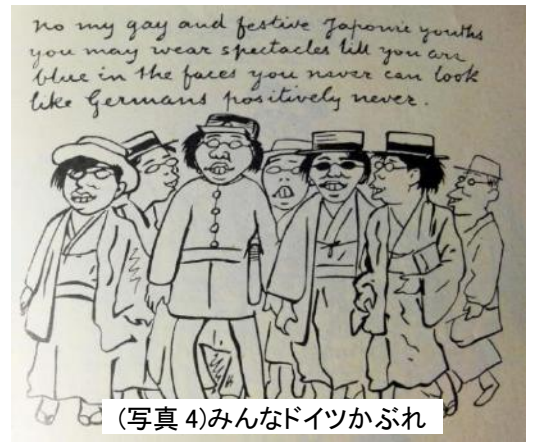 no my gay and festive Japonic youths
you may wear spectacles till you are
blue in the faces you never can look
like Germans positively never.
(写真 4)みんなドイツかぶれ